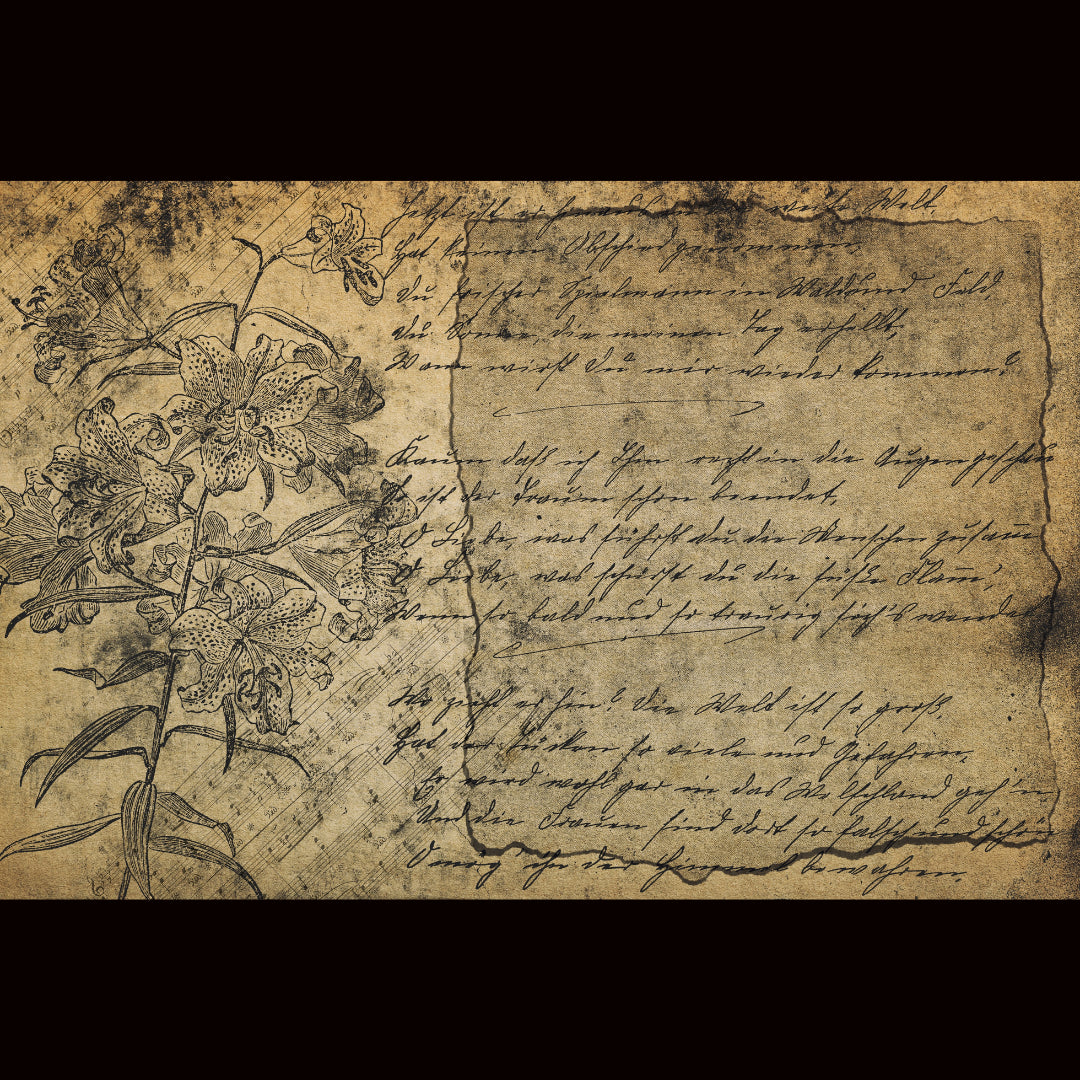 Jetzt ist er hinaus weite Welt,
Hat keinen Abschied genommen
Du frischer Spielmann in Wald und Feld,
Du Sonne, die meinen Tag erhellt,
Wann wirst Du mir wieder kommen?
Kaum daß ich Ihm recht in die Augen geschau
So ist der Traum schon beendet,
O Liebe, was führst du die Menschen zusam̄
O Liebe, was schürst du die süße Flam̄',
Wenn so bald und so traurig sich's wende
Wo zieht er hin? Die Welt ist so groß,
Hat der Tücken so viele und Gefahren,
Er wird wohl gar in das Welschland geh'n,
Und die Frauen sind dort so falsch und schön
O mög' ihn der Himmel bewahren.